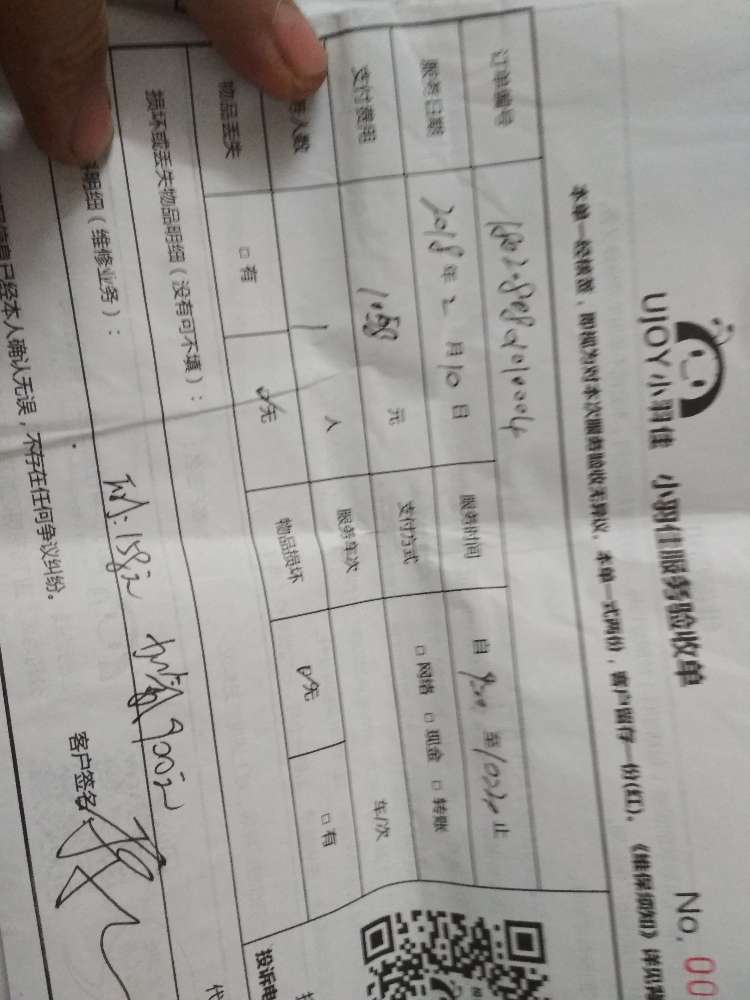 UJOY小羽佳 小羽佳服务验收单
No. 00
本单一经核签，即视为对本次服务验收无异议。本单一式两份，客户留存一份(红)。《维保须知》详见
订单编号
服务日期 2018年2月10日 服务时间 自 至 止
支付费用 1058 元 支付方式 □网络 □现金 □转账
人数 1 人 服务车次 车/次
物品丢失 □有 无 物品损坏 无 □有
损坏或丢失物品明细（没有可不填）：
明细（维修业务）：
158 900
信息已经本人确认无误，不存在任何争议纠纷。 客户签名：
投诉电
代